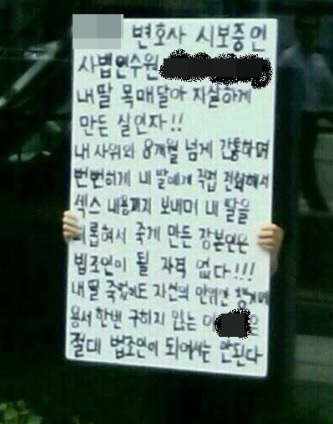 변호사 시보중인
사법연수원
내딸 목매달아 자살하게
만든 살인자!!
내 사위와 8개월 넘게 간통하며
뻔뻔하게 내 딸에게 직접 전화해서
섹스 내용까지 보내며 내 딸을
괴롭혀서 죽게 만든 장본인은
법조인이 될 자격 없다!!!
내딸 죽었어도 자신의 안위만 챙기며
용서 한번 구하지 않는 이 은
절대 법조인이 되어서는 안된다